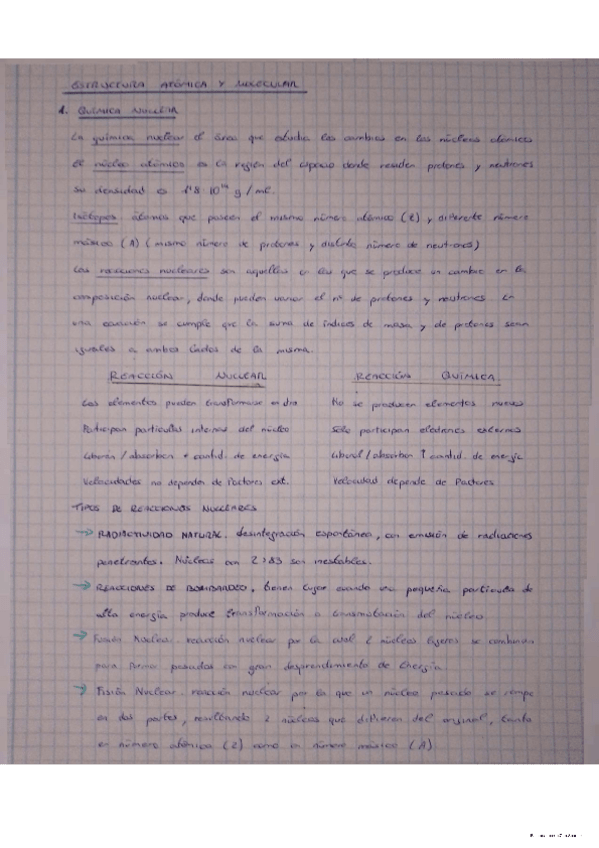 ESTRUCTURA ATÓMICA Y MOLECULAR
1. QUÍMICA NUCLEAR
La química nuclear el área que estudia los cambios en los núcleos atómicos
El núcleo atómico es la región del espacio donde residen protones y neutrones
su densidad es 1'8 · 10¹⁴ g / ml.
Isótopos átomos que poseen el mismo número atómico (Z) y diferente número
másico (A) (mismo número de protones y distinto número de neutrones)
Las reacciones nucleares son aquellas en las que se produce un cambio en la
composición nuclear, donde pueden variar el nº de protones y neutrones. En
una ecuación se cumple que la suma de índices de masa y de protones sean
iguales a ambos lados de la misma.
REACCIÓN NUCLEAR
REACCIÓN QUÍMICA
Los elementos pueden transformarse en otro
No se producen elementos nuevos
Participan partículas internas del núcleo
Solo participan electrones externos
Liberan / absorben cantid. de energía
Liberal / absorben ↑ cantid. de energía
Velocidades no dependen de factores ext.
Velocidad depende de factores
TIPOS DE REACCIONES NUCLEARES
→ RADIACTIVIDAD NATURAL. desintegración espontánea, con emisión de radiaciones
penetrantes. Núcleos con Z>83 son inestables.
→ REACCIONES DE BOMBARDEO, tienen lugar cuando una pequeña partícula de
alta energía produce transformación o transmutación del núcleo
→ Fusión Nuclear. reacción nuclear por la cual 2 núcleos ligeros se combinan
para formar pesados con gran desprendimiento de Energía
→ Fisión Nuclear. reacción nuclear por la que un núcleo pesado se rompe
en dos partes, resultando 2 núcleos que difieren del original, tanto
en número atómico (Z) como en número másico (A)